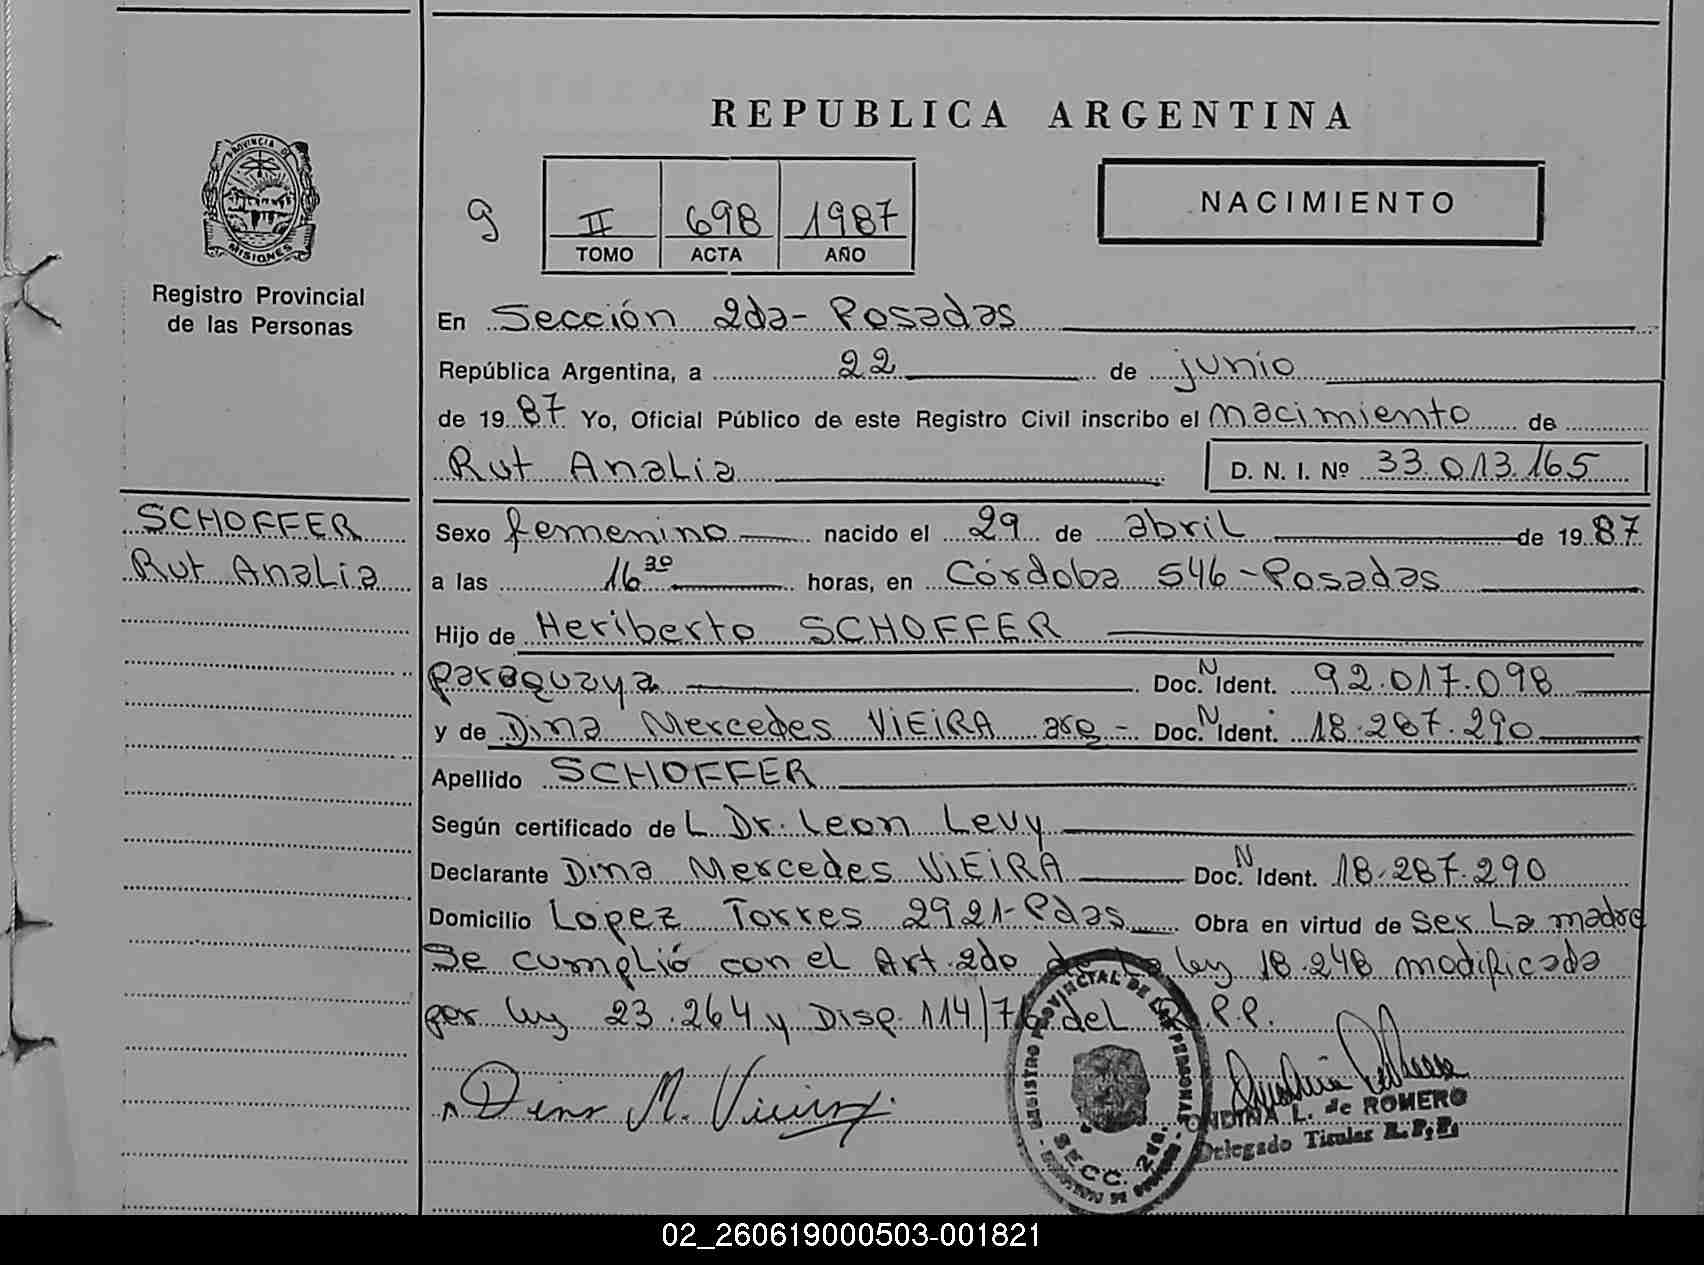 REPUBLICA ARGENTINA
PROVINCIA DE
MISIONES
Registro Provincial
de las Personas
9
II 698 1987
TOMO ACTA AÑO
NACIMIENTO
En Sección 2da- Posadas
República Argentina, a 22 de junio
de 19 87 Yo, Oficial Público de este Registro Civil inscribo el nacimiento de
Rut Analia D. N. I. Nº 33.013.165
SCHOFFER
Rut Analia
Sexo femenino nacido el 29 de abril de 19 87
a las 16 30 horas, en Córdoba 546-Posadas
Hijo de Heriberto SCHOFFER
paraguaya Doc. N Ident. 92.017.098
y de Dina Mercedes VIEIRA arg - Doc. N Ident. 18.287.290
Apellido SCHOFFER
Según certificado de L Dr. Leon Levy
Declarante Dina Mercedes VIEIRA Doc. N Ident. 18.287.290
Domicilio Lopez Torres 2921-Pdas Obra en virtud de ser la madre
Se cumplió con el Art. 2do de la ley 18.248 modificada
por ley 23.264 y Disp. 114/76 del R.P.P.
Dina M. Vieira
REGISTRO PROVINCIAL DE LAS PERSONAS
SECC. 2da.
ONDINA L. de ROMERO
Delegado Titular R.P.P.
02_260619000503-001821